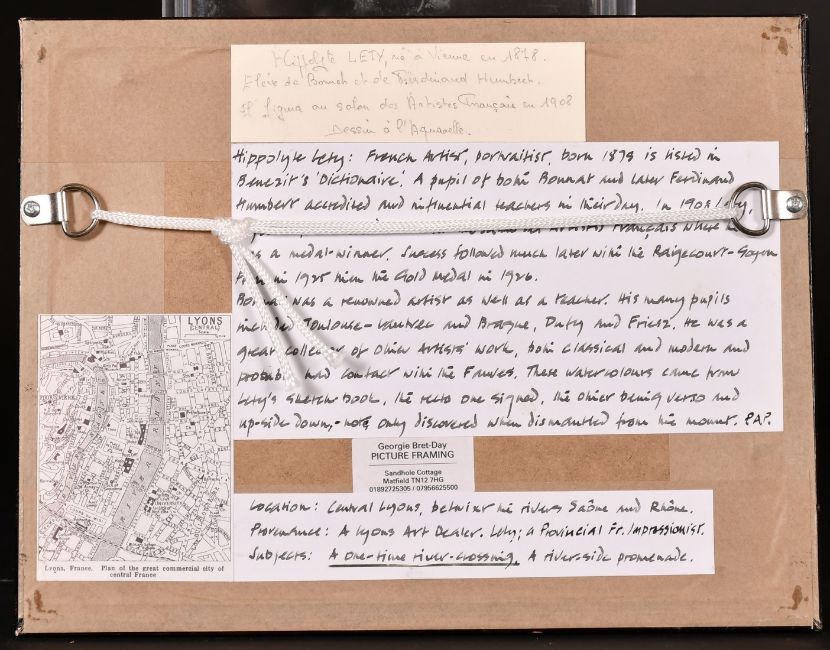 Hippolyte LETY, né à Vienne en 1878.
Elève de Bonnat et de Ferdinand Humbert.
Il figura au salon des Artistes Français en 1908
Dessin à l'Aquarelle.
Hippolyte Lety: French Artist, portraitist, born 1878 is listed in
Benezit's 'Dictionaire'. A pupil of both Bonnat and later Ferdinand
Humbert accredited and influential teachers in their day. In 1908 Lety,
Artistes Français where
a medal-winner. Success followed much later with the Raigecourt-Goyon
in 1925 then the Gold Medal in 1926.
Bonnat was a renowned artist as well as a teacher. His many pupils
included Toulouse-Lautrec and Braque, Dufy and Friesz. He was a
great collector of other Artists' work, both classical and modern and
probably had contact with the Fauves. These watercolours came from
Lety's sketch book, the recto one signed, the other being verso and
up-side down,-note, only discovered when dismantled from the mount. P.A.P.
LYONS
CENTRAL
Lyons, France. Plan of the great commercial city of
central France
Georgie Bret-Day
PICTURE FRAMING
Sandhole Cottage
Matfield TN12 7HG
01892725305 / 07956625500
Location: Central Lyons, betwixt the rivers Saône and Rhône.
Provenance: A Lyons Art Dealer. Lety; a Provincial Fr. Impressionist.
Subjects: A one-time river-crossing. A river-side promenade.